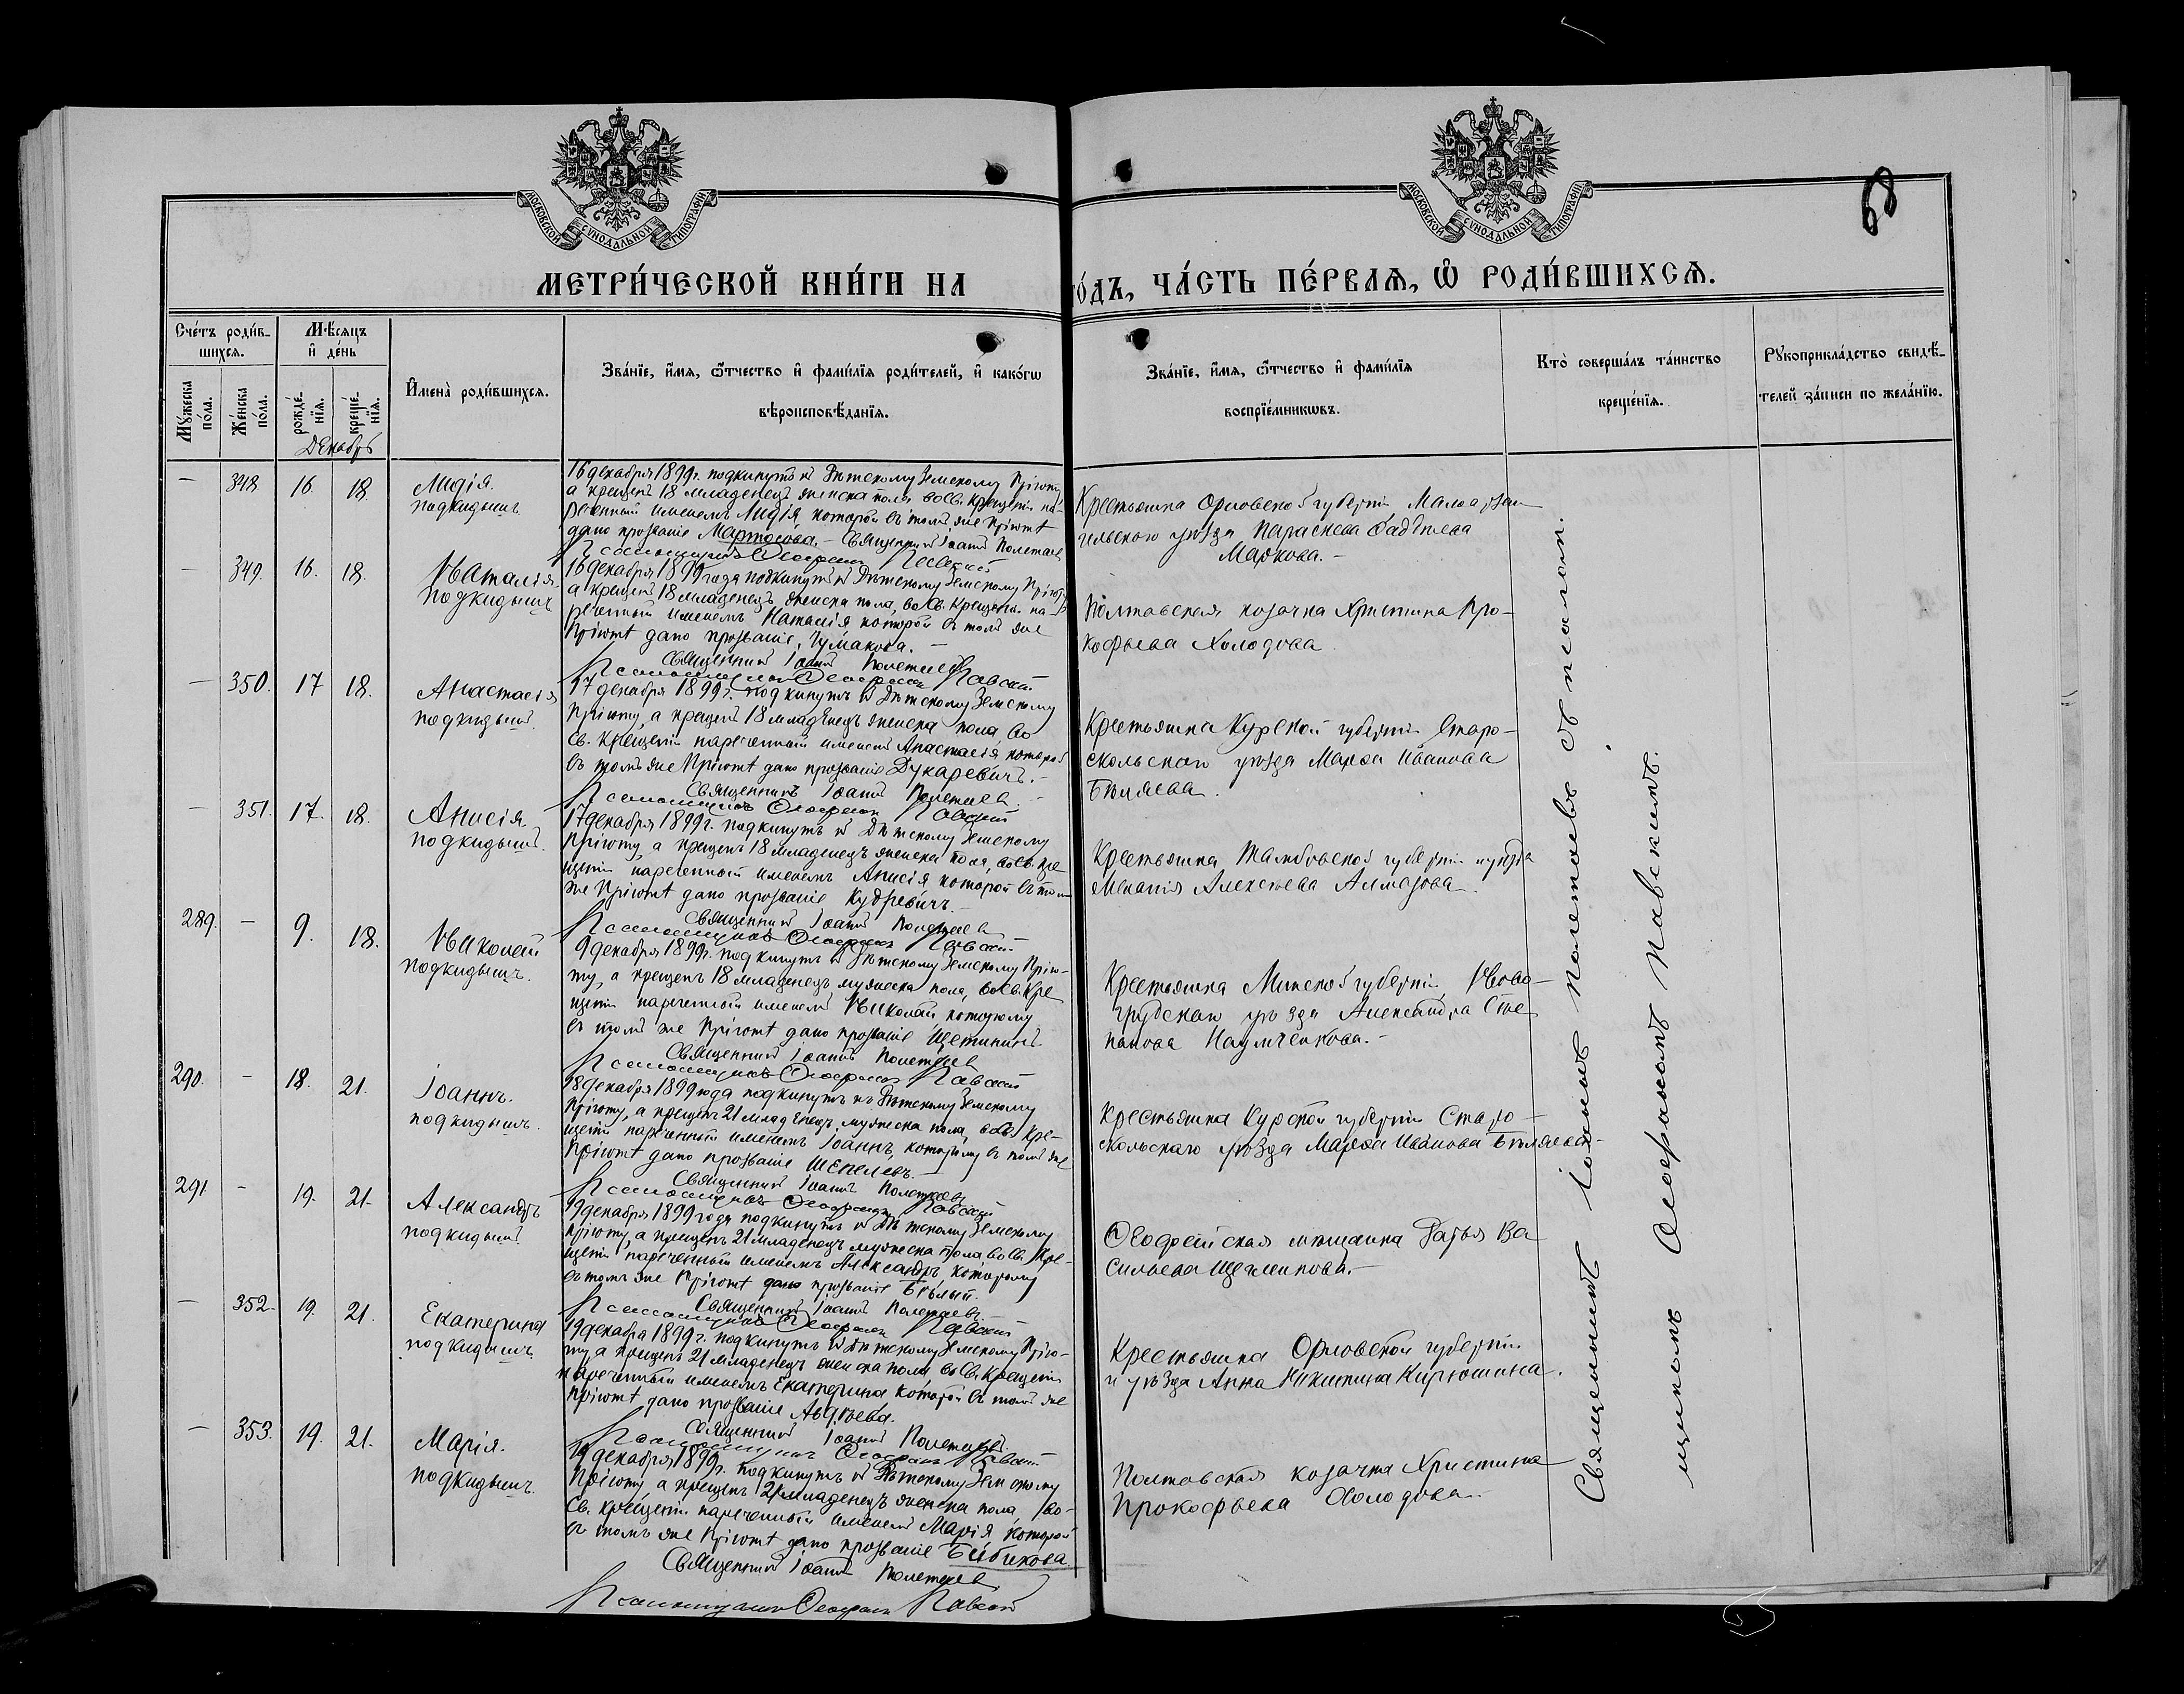 МОСКОВСКОЙ СѴНОДАЛЬНОЙ ТИПОГРАФІИ
МОСКОВСКОЙ СѴНОДАЛЬНОЙ ТИПОГРАФІИ
68
МЕТРИ́ЧЕСКОЙ КНИ́ГИ НА
ГО́ДЪ, ЧА́СТЬ ПЕ́РВАѦ, Ѡ РОДИ́ВШИХСѦ.
Сче́тъ роди́в-
шихсѧ.
Мꙋ́жеска
по́ла.
Же́нска
по́ла.
Мѣ́сѧцъ
и҆ де́нь
рожде́-
нїѧ.
креще́-
нїѧ.
Декабрь
И҆мена̀ роди́вшихсѧ.
Зва́нїе, и҆́мѧ, ѻ҆́тчество и҆ фами́лїѧ роди́телей, и҆ како́гѡ
вѣроисповѣ́данїѧ.
Зва́нїе, и҆́мѧ, ѻ҆́тчество и҆ фами́лїѧ
воспрїе́мникѡвъ.
Кто̀ соверша́лъ та́инство
креще́нїѧ.
Рꙋкоприкла́дство свидѣ́-
телей за́писи по жела́нїю.
— 348 16. 18. Лидія.
подкидышъ.
16 декабря 1899 г. подкинутъ къ Дѣтскому Земскому Пріюту,
а крещенъ 18 младенецъ женска пола во Св. Крещеніи на-
реченный именемъ Лидія, которой въ томъ же Пріютѣ
дано прозваніе Мартосова. — Священникъ Іоаннъ Полетаевъ
Псаломщикъ Ѳеофанъ Павскій
Крестьянка Орловской губерніи Малоархан-
гельскаго уѣзда Параскева Фадѣева
Маркова. —
— 349. 16. 18. Наталія.
подкидышъ
16 декабря 1899 года подкинутъ къ Дѣтскому Земскому Пріюту,
а крещенъ 18 младенецъ женска пола, во Св. Крещеніи на-
реченный именемъ Наталія которой въ томъ же
Пріютѣ дано прозваніе Чумакова. —
Священникъ Іоаннъ Полетаевъ
Псаломщикъ Ѳеофанъ Павскій
Полтавская козачка Христина Про-
кофьева Холодова
— 350. 17 18. Анастасія
подкидышъ.
17 декабря 1899 г. подкинутъ къ Дѣтскому Земскому
Пріюту, а крещенъ 18 младенецъ женска пола, во
Св. Крещеніи нареченный именемъ Анастасія, которой
въ томъ же Пріютѣ дано прозваніе Дукаревичъ. —
Священникъ Іоаннъ Полетаевъ. —
Псаломщикъ Ѳеофанъ Павскій
Крестьянка Курской губерніи Старо-
скольскаго уѣзда Марѳа Иванова
Бѣляева.
— 351. 17. 18. Анисія
подкидышъ.
17 декабря 1899 г. подкинутъ къ Дѣтскому Земскому
Пріюту, а крещенъ 18 младенецъ женска пола, во Св. Кре-
щеніи нареченный именемъ Анисія которой въ томъ
же Пріютѣ дано прозваніе Кудревичъ. —
Священникъ Іоаннъ Полетаевъ
Псаломщикъ Ѳеофанъ Павскій
Крестьянка Тамбовской губерніи и уѣзда
Меланія Алексѣева Алмазова.
289. — 9. 18. Николай
подкидышъ.
9 декабря 1899 г. подкинутъ къ Дѣтскому Земскому Прію-
ту, а крещенъ 18 младенецъ мужеска пола, во Св. Кре-
щеніи нареченный именемъ Николай которому
въ томъ же Пріютѣ дано прозваніе Щетининъ.
Священникъ Іоаннъ Полетаевъ
Псаломщикъ Ѳеофанъ Павскій
Крестьянка Минской губерніи, Ново-
грудскаго уѣзда Александра Сте-
панова Наумченкова. —
290. — 18. 21. Іоаннъ.
подкидышъ.
18 декабря 1899 года подкинутъ къ Дѣтскому Земскому
Пріюту, а крещенъ 21 младенецъ, мужеска пола, во Св. Кре-
щеніи нареченный именемъ Іоаннъ, которому въ томъ же
Пріютѣ дано прозваніе Шепелевъ. —
Священникъ Іоаннъ Полетаевъ
Псаломщикъ Ѳеофанъ Павскій
Крестьянка Курской губерніи Старо-
скольскаго уѣзда Марѳа Иванова Бѣляева —
291 — 19. 21. Александръ
подкидышъ.
19 декабря 1899 года подкинутъ къ Дѣтскому Земскому
Пріюту, а крещенъ 21 младенецъ мужеска пола во Св. Кре-
щеніи нареченный именемъ Александръ, которому
въ томъ же Пріютѣ дано прозваніе Бѣлый.
Священникъ Іоаннъ Полетаевъ.
Псаломщикъ Ѳеофанъ Павскій
Ѳеодосійская мѣщанка Дарья Ва-
сильева —
— 352. 19. 21. Екатерина
подкидышъ.
19 декабря 1899 г. подкинутъ къ Дѣтскому Земскому Прію-
ту, а крещенъ 21 младенецъ женска пола во Св. Крещеніи
нареченный именемъ Екатерина которой въ томъ же
Пріютѣ дано прозваніе Авдѣева.
Священникъ Іоаннъ Полетаевъ
Псаломщикъ Ѳеофанъ Павскій
Крестьянка Орловской губерніи
и уѣзда Анна Никитина Кирюшина.
— 353. 19. 21. Марія.
подкидышъ.
19 декабря 1899 г. подкинутъ къ Дѣтскому Земскому
Пріюту, а крещенъ 21 младенецъ женска пола, во
Св. Крещеніи нареченный именемъ Марія, которой
въ томъ же Пріютѣ дано прозваніе Бибикова.
Священникъ Іоаннъ Полетаевъ
Псаломщикъ Ѳеофанъ Павскій
Полтавская козачка Христина
Прокофьева Холодова. —
Священникъ Іоаннъ Полетаевъ съ псалом-
щикомъ Ѳеофаномъ Павскимъ.